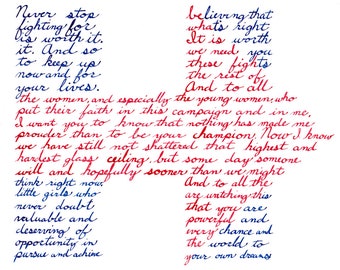 Never stop believing that
fighting for what's right.
is worth it. It is worth
it. And so we need you
to keep up these fights
now and for the rest of
your lives. And to all
the women, and especially the young women, who
put their faith in this campaign and in me,
I want you to know that nothing has made me
prouder than to be your champion. Now I know
we have still not shattered that highest and
hardest glass ceiling, but some day someone
will and hopefully sooner than we might
think right now. And to all the
little girls who are watching this
never doubt that you are
valuable and powerful and
deserving of every chance and
opportunity in the world to
pursue and achieve your own dreams